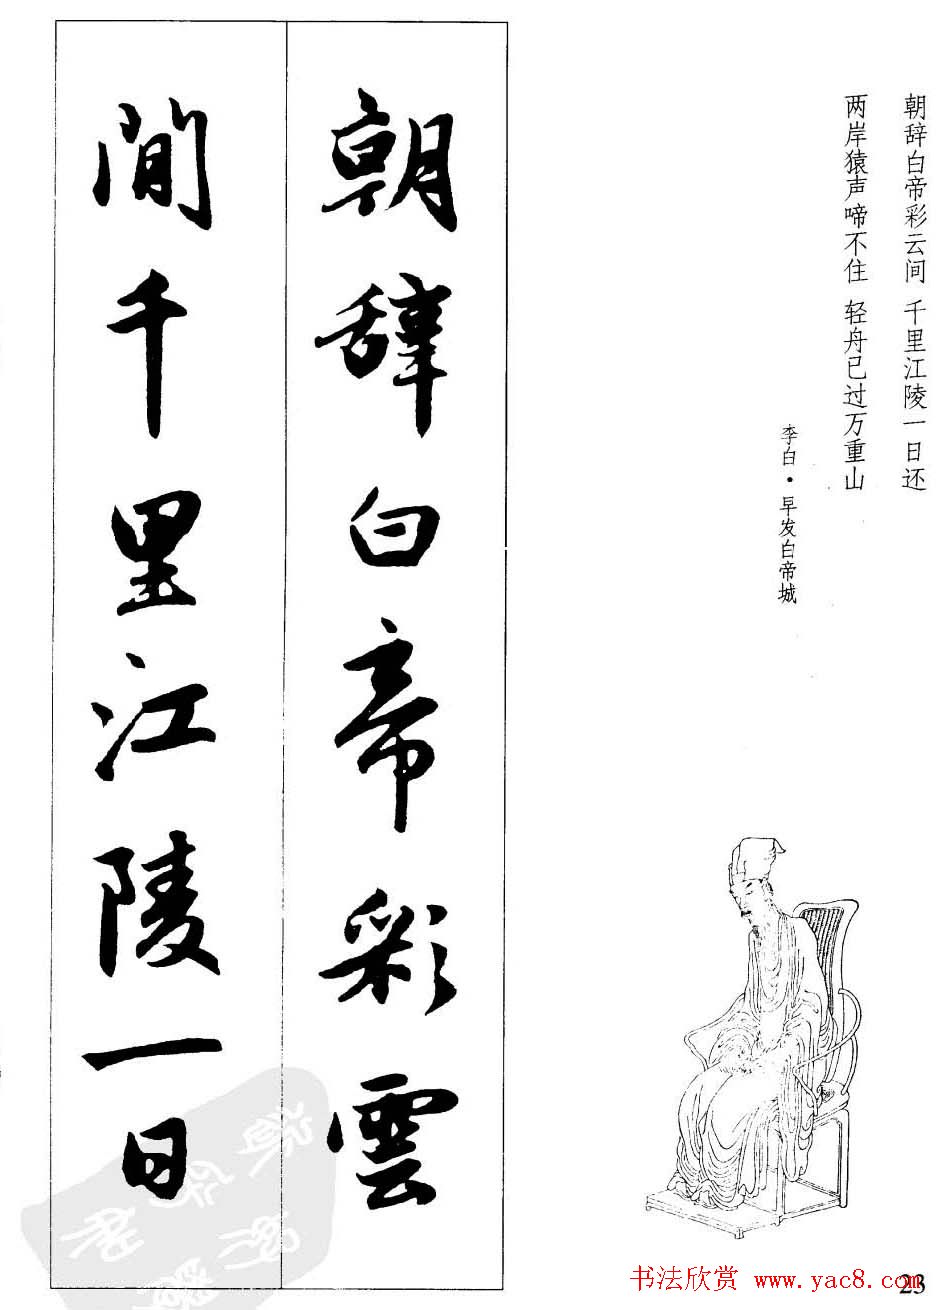 朝辞白帝彩云间 千里江陵一日还
两岸猿声啼不住 轻舟已过万重山
李白·早发白帝城
朝辭白帝彩雲
間千里江陵一日
23
书法欣赏 www.yac8.com